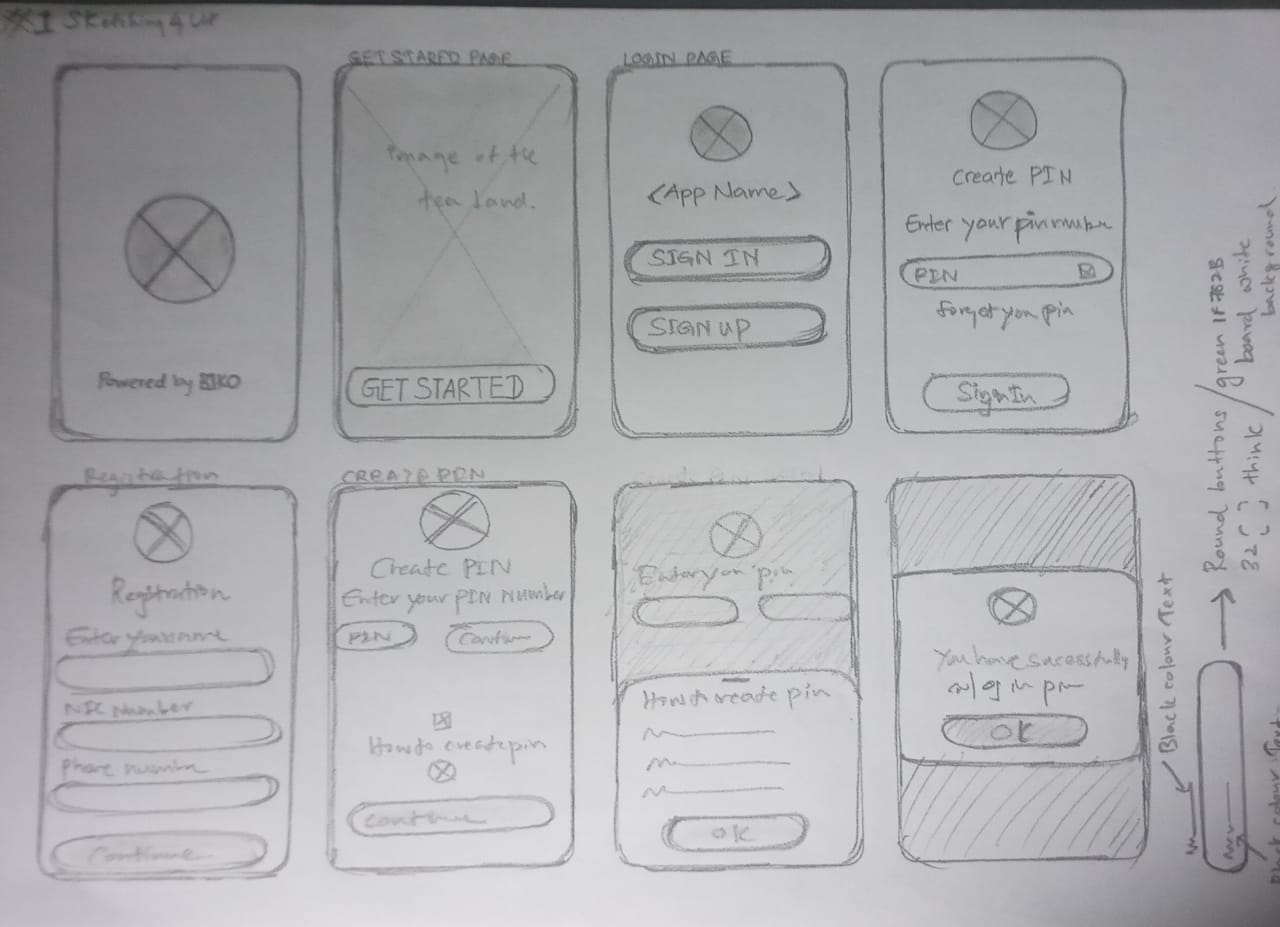 Sketching 4 UX
GET STARED PAGE
LOGIN PAGE
Powered by
Image of the
tea land.
GET STARTED
<App Name>
SIGN IN
SIGN UP
Create PIN
Enter your pin number
PIN
forget you pin
Sign In
Registration
Registration
Enter your name
NIC Number
Phone number
Continue
CREATE PIN
Create PIN
Enter your PIN Number
PIN
Continue
How to create pin
continue
Enter your pin
How to create pin
OK
You have sucessfully
log in
OK
Black colour Text
Round buttons / green 1F782B
32 [ ] think / board white
background
colour Text